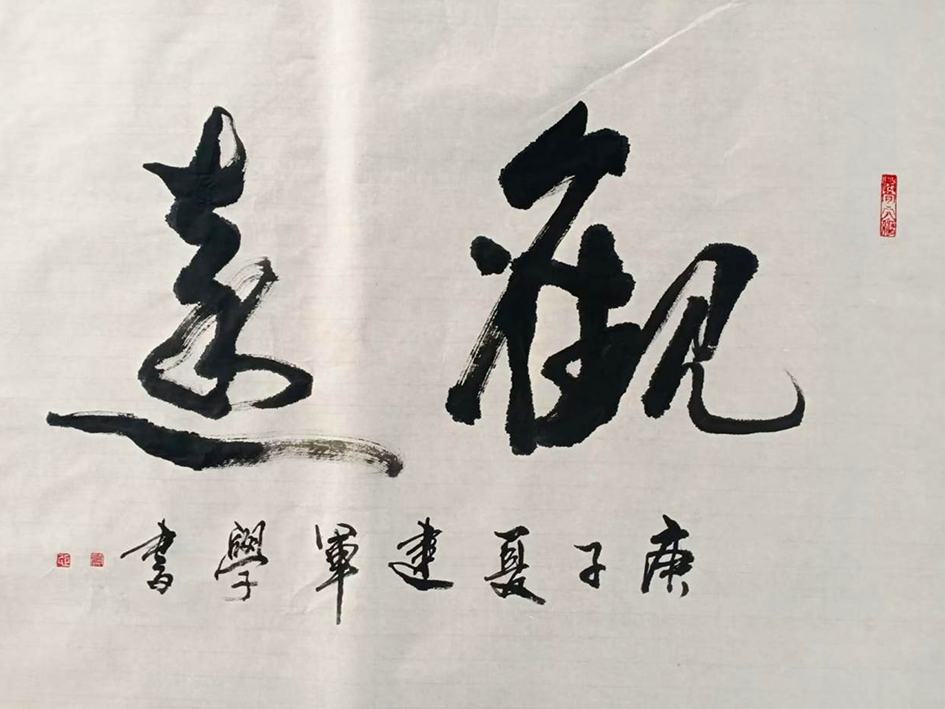 觀遠
庚子夏建軍學書